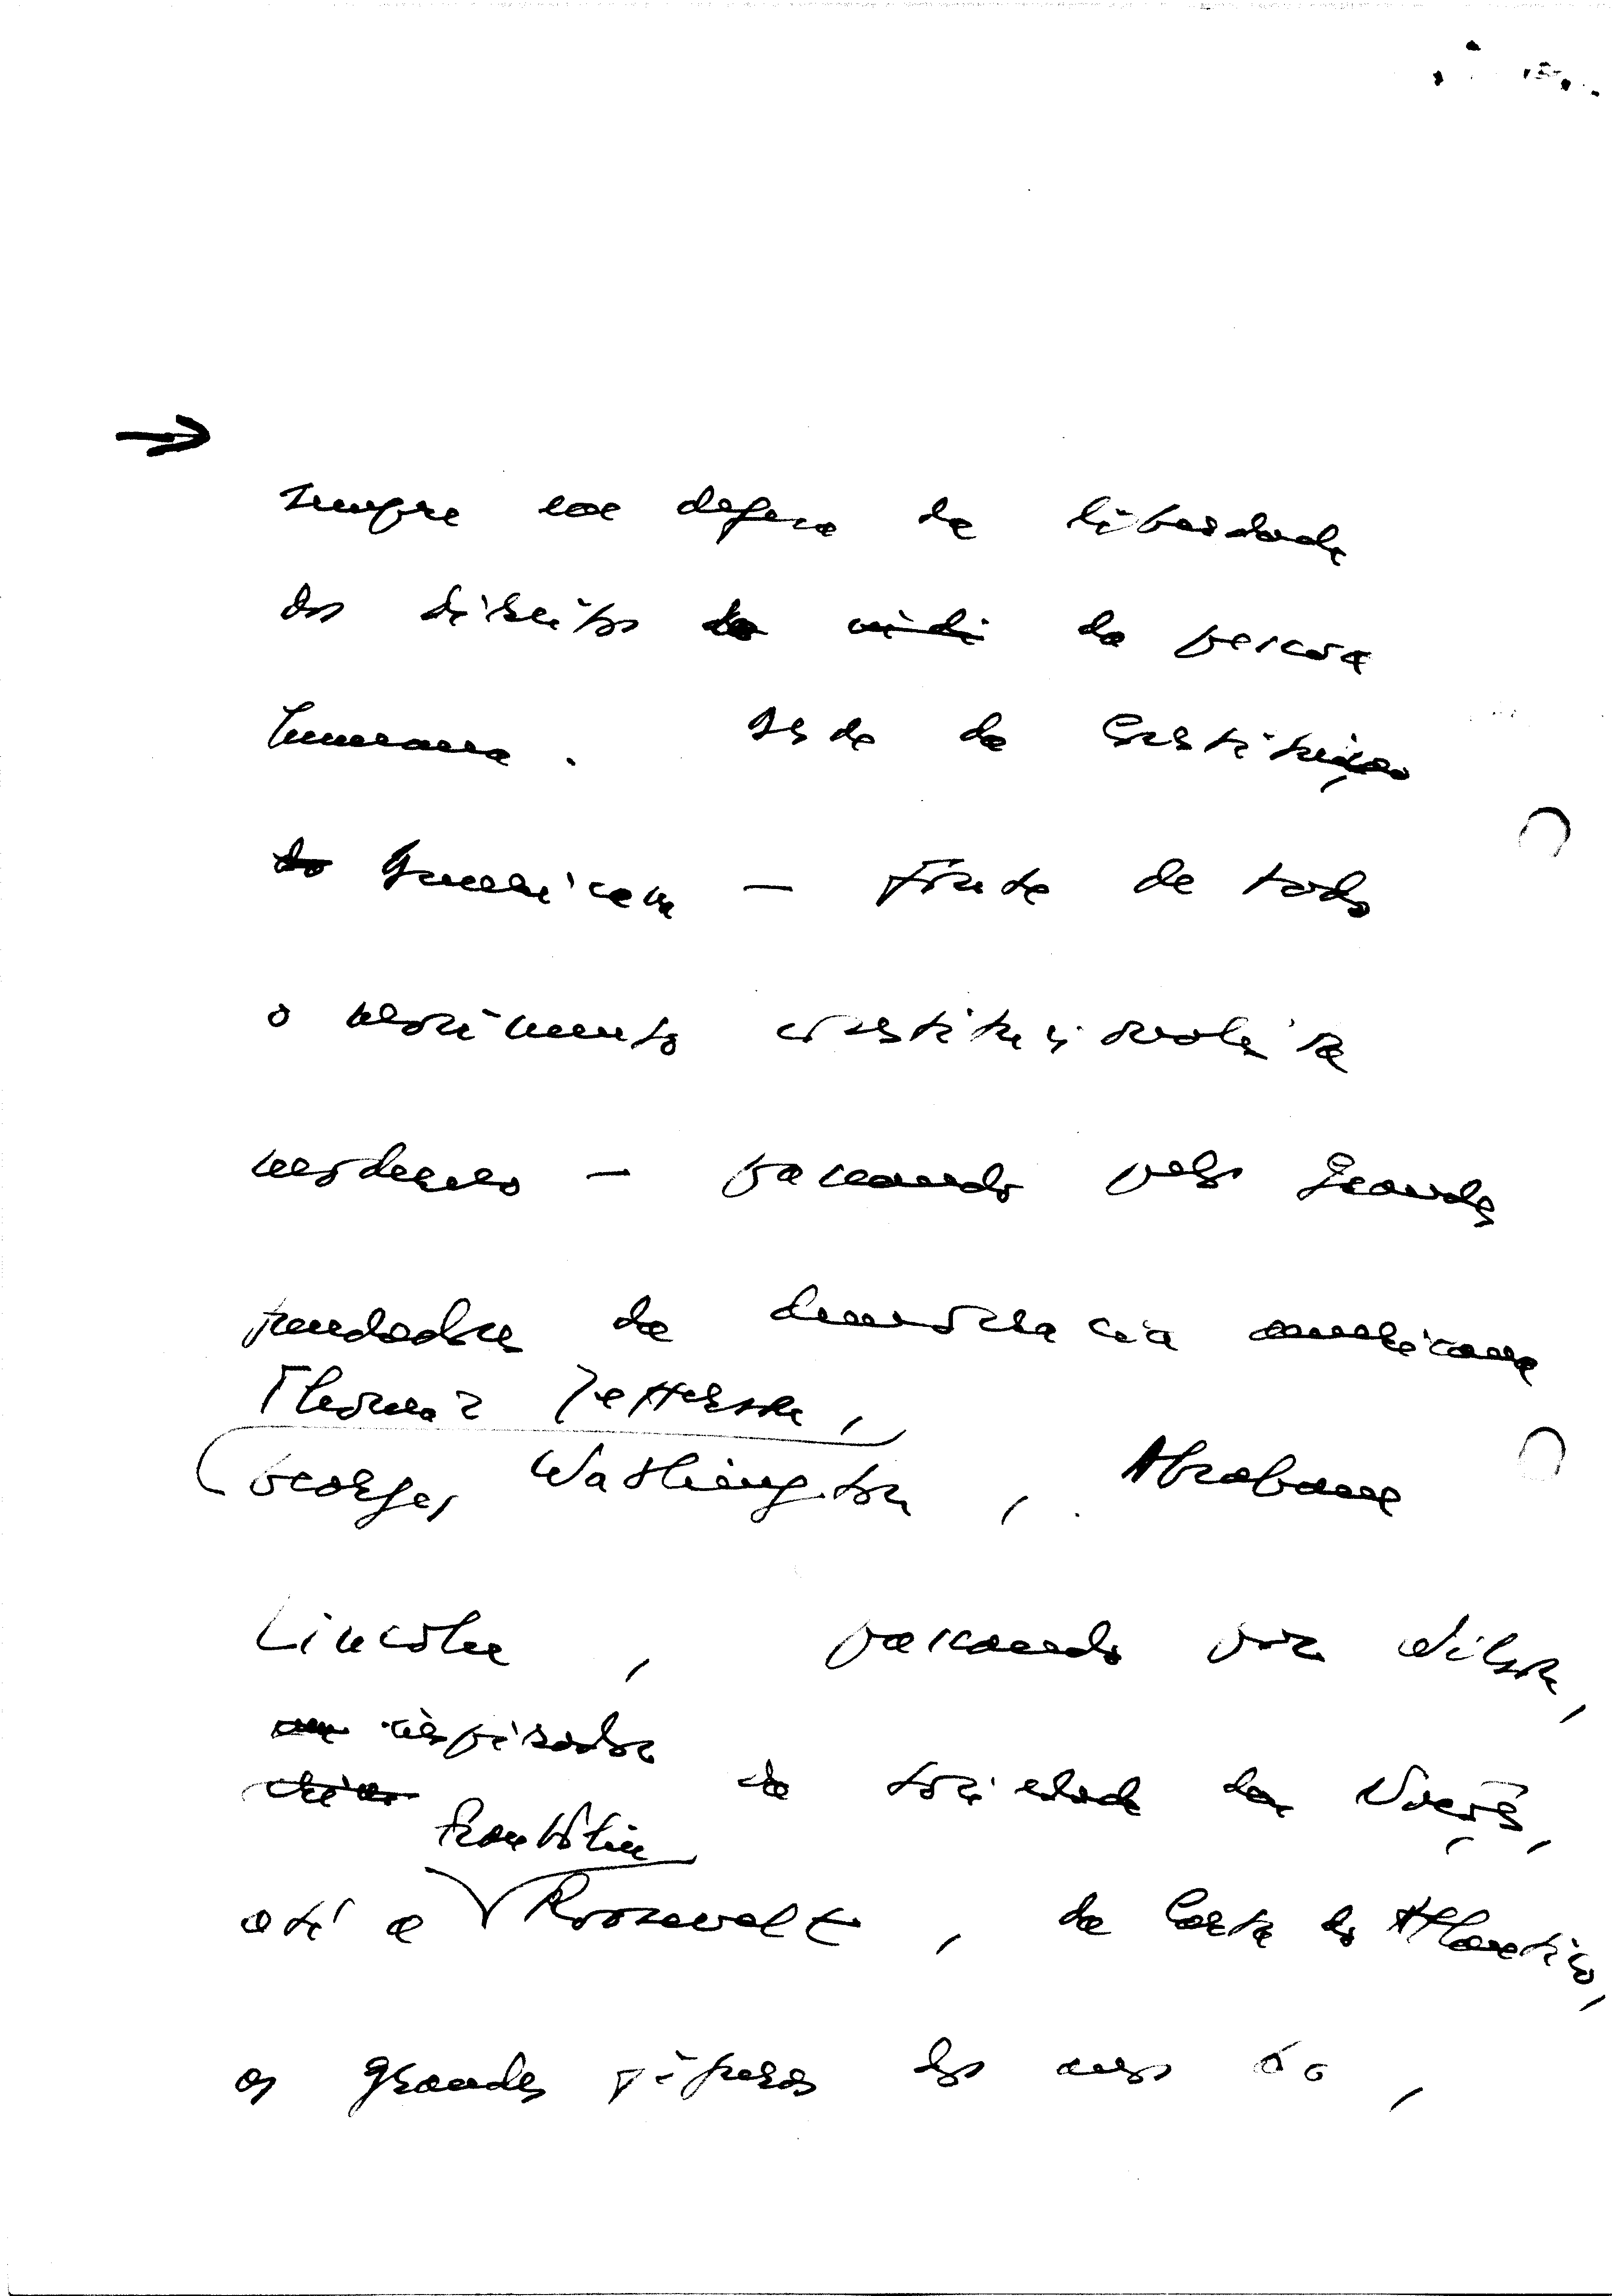 sempre em defesa da liberdade
dos direitos da pessoa
humana. da Constituição
Americana — fonte de todo
o movimento constitucionalista
moderno — passando pelos grandes
fundadores da democracia americana
Thomaz Jefferson,
George Washington, Abraham
Lincoln, passando por Wilson,
inspirador
da sociedade das Nações,
Franklin
até a Roosevelt, da Carta do Atlântico,
as grandes figuras dos anos 60,